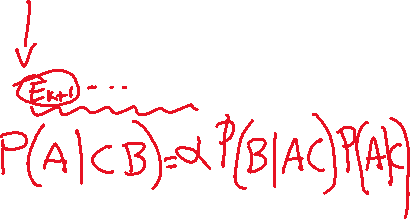 E_{k+1} ...
P(A|CB)=α P(B|AC)P(A|C)